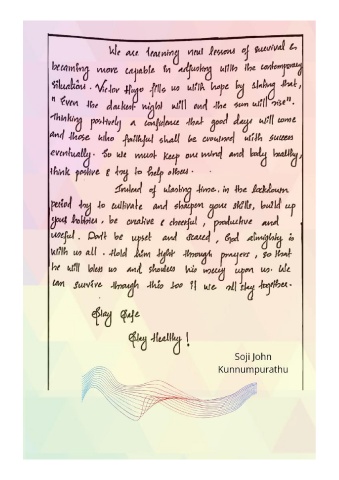 We are learning new lessons of survival &
becoming more capable in adjusting with the contemporary
situations. Victor Hugo fills us with hope by stating that,
" Even the darkest night will end the sun will rise".
Thinking positively a confidence that good days will come
and those who faithful shall be crowned with success
eventually. So we must keep our mind and body healthy,
think positive & try to help others.
Instead of wasting time, in the lockdown
period try to cultivate and sharpen your skills, build up
your hobbies, be creative & cheerful, productive and
useful. Don't be upset and scared, God almighty is
with us all. Hold him tight through prayers, so that
he will bless us and showers his mercy upon us. We
can survive through this too if we all stay together.
Stay Safe
Stay Healthy!
Soji John
Kunnumpurathu